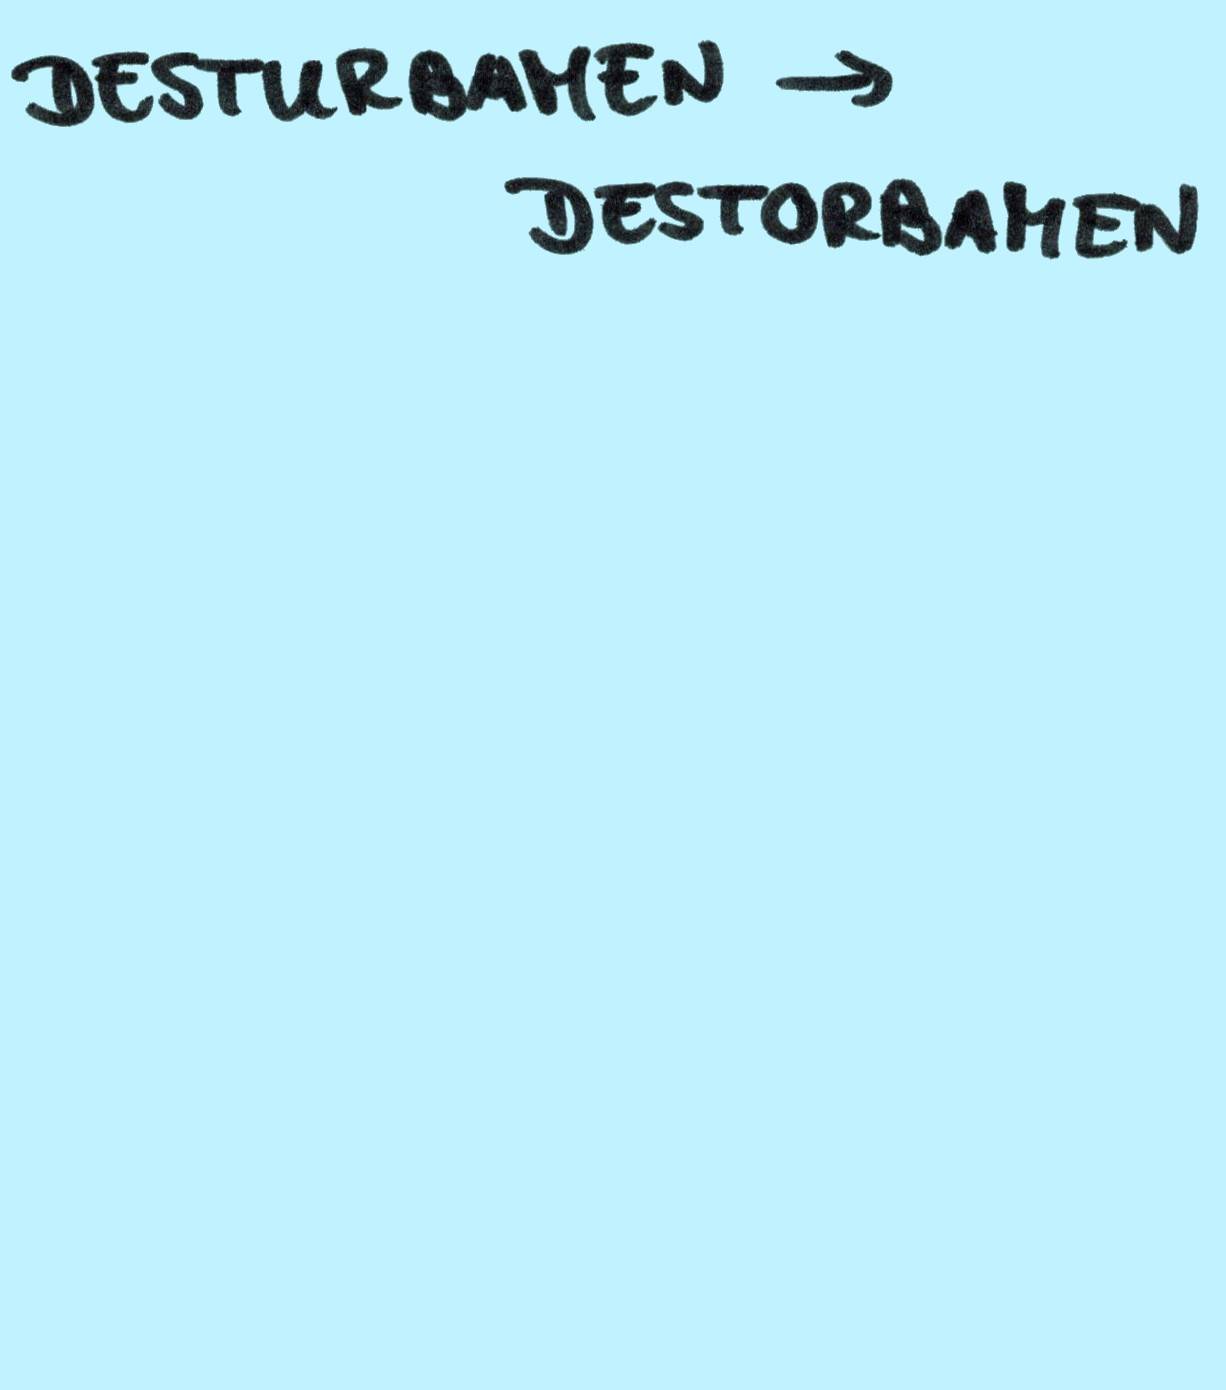 DESTURBAMEN →
DESTORBAMEN